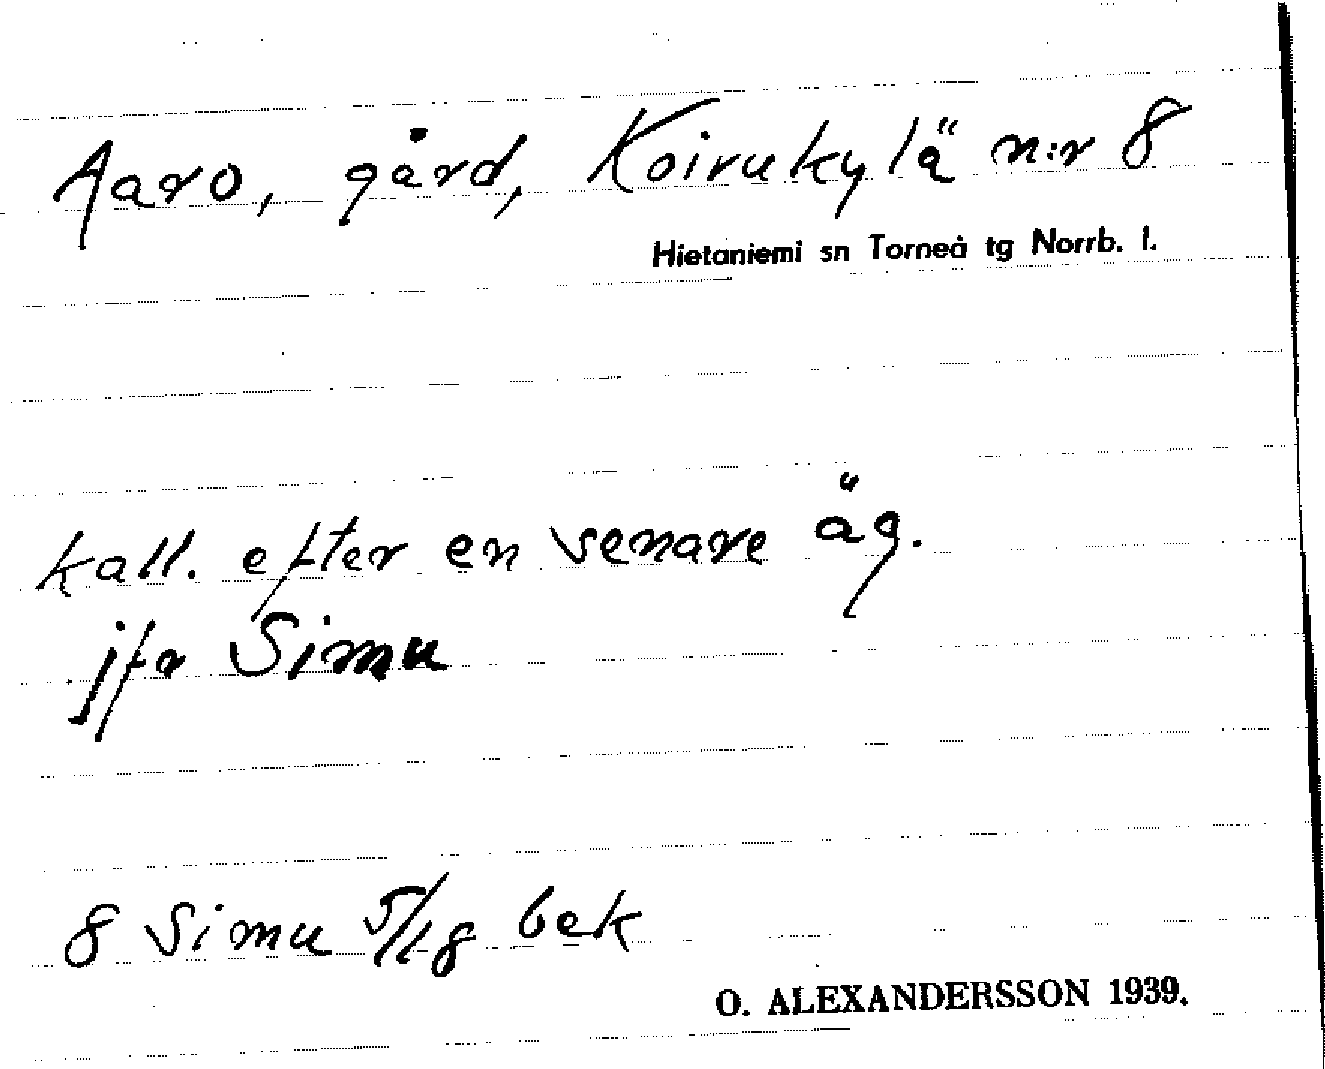 Aaro, gård, Koirukylä n:r 8
Hietaniemi sn Torneå tg Norrb. l.
kall. efter en senare äg.
jfr Simu
8 Simu 5/18 bek
O. ALEXANDERSSON 1939.